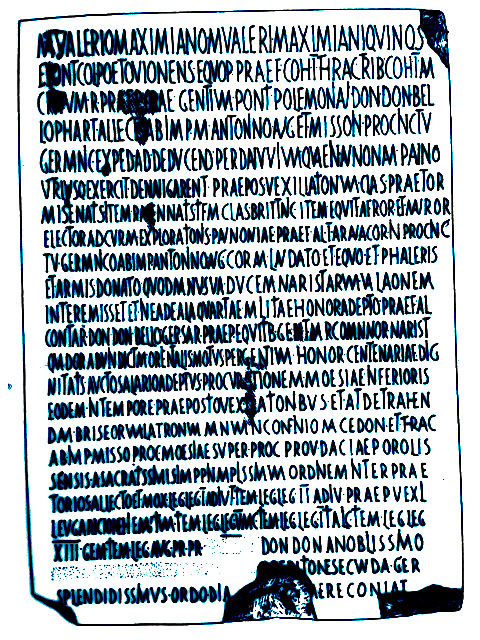 M VALERIO MAXIMIANO M VALERI MAXIMIANI QVINQ S
F PONT COL POETOVIONENS EQVO P PRAEF COH I THRAC RIB COH I M
C VM R PRAE AE GENTIVM PONT POLEMONA DON DON BEL
LO PHART ALLEC AB IMP M ANTONNO AVG ET MISSO N PROCNCTV
GERMNC EXPED AD DEDVCEND PER DANVVIVM QVAE N ANNONAM PANNO
VTRIVSQ EXERCIT DENAVIGARENT PRAEPOS VEXILLATONVM CLAS PRAETOR
MISENATS ITEM RAVENNATS ITEM CLAS BRITTNC ITEM EQVIT AFROR ET MAVROR
ELECTOR AD CVRAM EXPLORATONS PANNONIAE PRAEF AL I ARAVACOR N PROCNC
TV GERMNCO AB IMP ANTONNO AVG CORAM LAVDATO ET EQVO ET PHALERIS
ET ARMIS DONATO QVOD MANV SVA DVCEM NARISTARVM VALAONEM
INTEREMISSET ET N EADEM ALA QVARTAE MILITIAE HONOR ADEPTO PRAEF AL
CONTAR DON DON BELLO GERM SAR PRAEP EQVITB GENT MARCOMANNOR NARIST
QVADOR AD VINDICT MOT ORENTALIS MOTVS PERGENTIVM HONOR CENTENARIAE DIG
NITATIS AVCTO SALARIO ADEPTVS PROCVRATIONEM MOESIAE NFERIORIS
EODEM N TEMPORE PRAEPOSTO VEXILLATONBVS ET AT DETRAHEN
DAM BRISEORVM LATRONVM MANVM N CONFNIO MACEDON ET THRAC
AB IMP MISSO PROC MOESIAE SVPER PROC PROV DACIAE POROLIS
SENSIS A SACRATSSIMIS IMPP N AMPLISSMVM ORDNEM NTER PRAE
TORIOS ALLECTO ET MOX LEG LEG I ADIVT ITEM LEG LEG II ADIV PRAEP VEXIL
LEVGARICIONE HIEMANTIVM ITEM LEG LEG V MC ITEM LEG LEG I ITALC ITEM LEG LEG
XIII GEM ITEM LEG AVG PR PR DON DON A NOBLISSMO
TONE SECVNDA GER
SPLENDIDISSMVS ORDO DIA AERE CONLAT